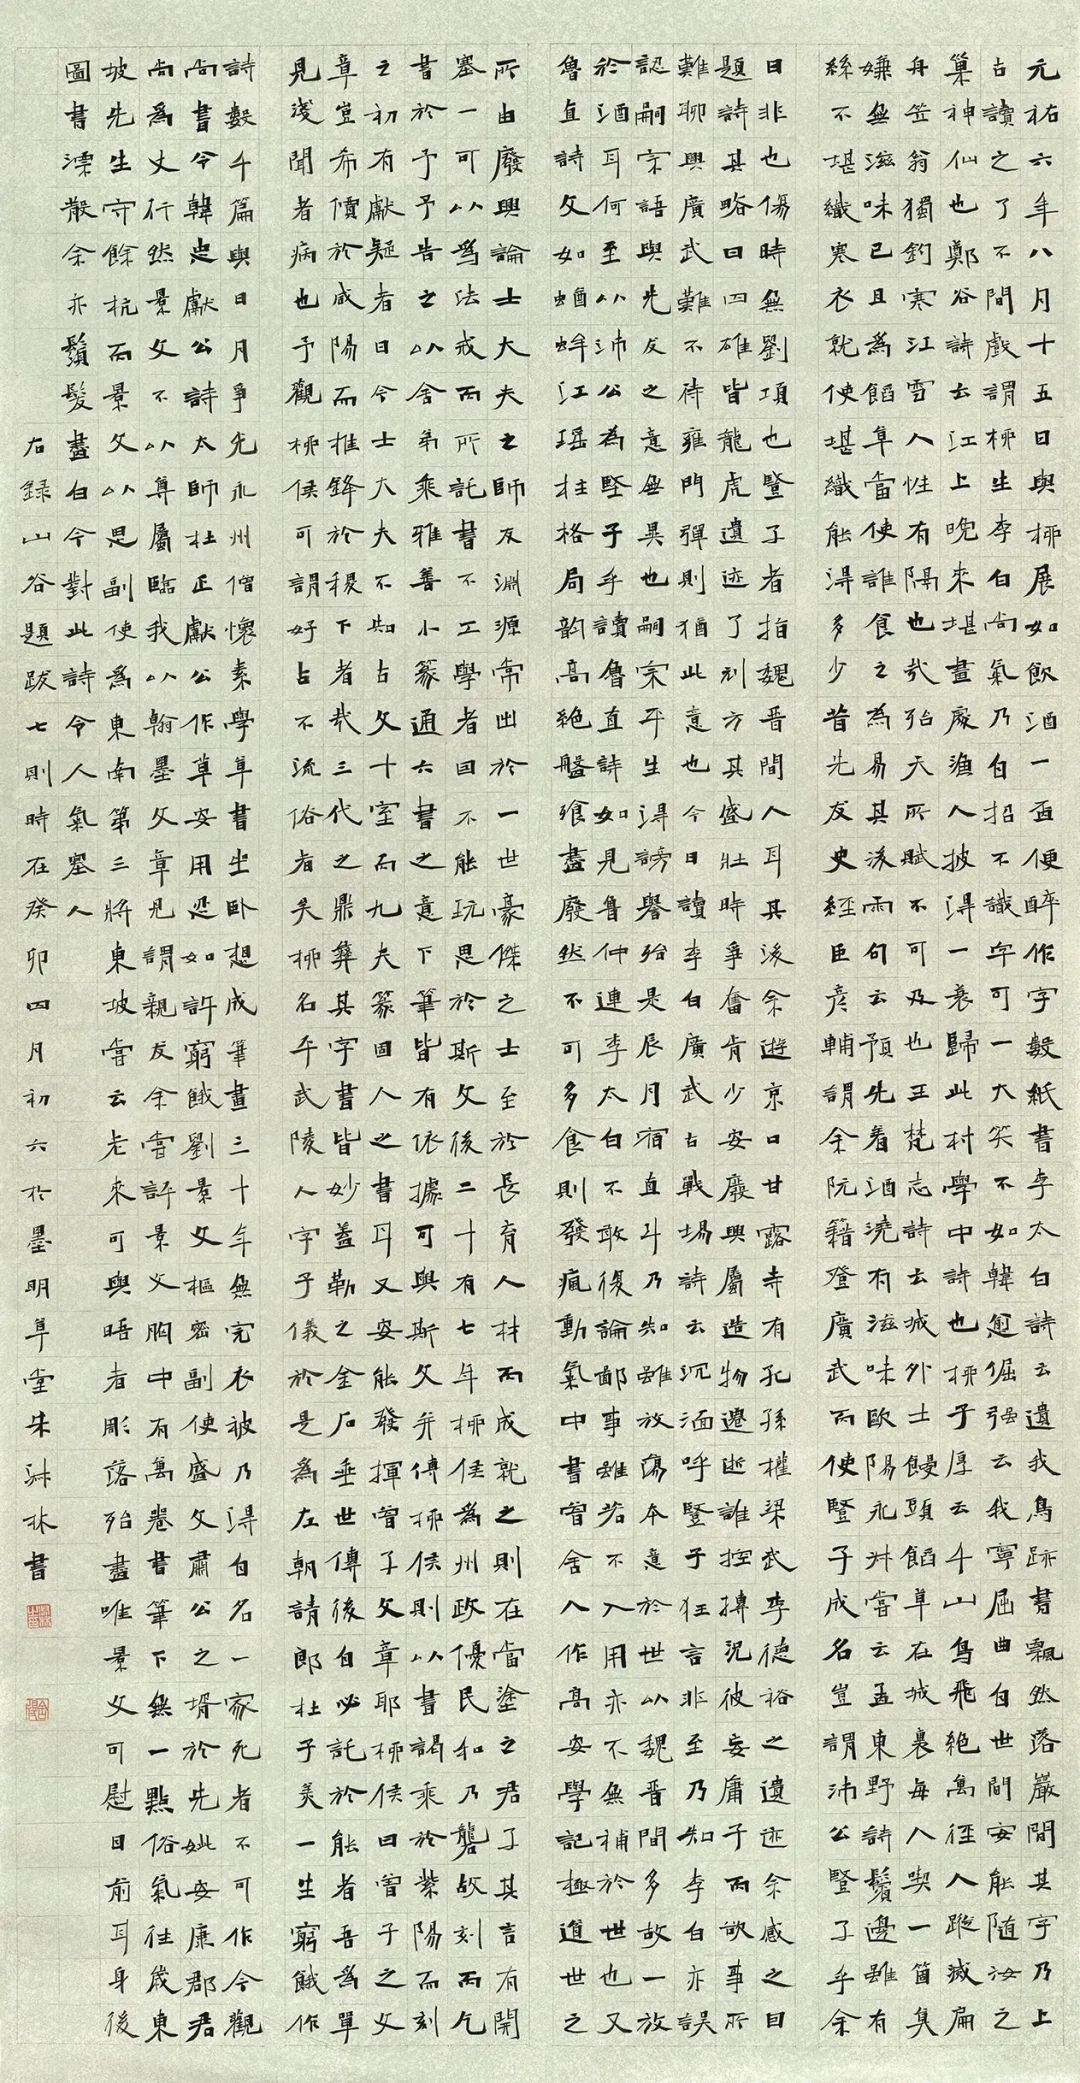 元祐六年八月十五日與柳展如飲酒一盃便醉作字數紙書李太白詩云遺我鳥跡書飄然落巖間其字乃上
古讀之了不閒戲謂柳生李白尚氣乃自招不識字可一大笑不如韓愈倔强云我寧屈曲自世間安能隨汝之
巢神仙也鄭谷詩云江上晚來堪畫處漁人披得一蓑歸此村學中詩也柳子厚云千山鳥飛絕萬徑人蹤滅扁
舟笠翁獨釣寒江雪人性有隔也哉殆天所賦不可及也王梵志詩云城外土饅頭餡草在城裏每人喫一箇莫
嫌無滋味已且為餡草當使誰食之為易其後兩句云預先着酒澆有滋味歐陽永叔嘗云孟東野詩鬢邊雖有
絲不堪織寒衣就使堪織能得多少昔先友史經臣彥輔謂余阮籍登廣武而使豎子成名豈謂沛公豎子乎余
曰非也傷時無劉項也豎子者指魏晉間人耳其後余遊京口甘露寺有孔孫權梁武李德裕之遺迹余感之曰
題詩其略曰四雄皆龍虎遺迹了刓方其盛壯時爭奮肯少安廢興屬造物遷逝誰控摶況彼妄庸子而欲事所
難聊興廣武難不待雍門彈則猶此意也今日讀李白廣武古戰場詩云沉湎呼豎子狂言非至乃知李白亦誤
認嗣宗語與先友之意無異也嗣宗平生得謗譽殆是辰月宿直斗乃知雖放蕩本意於世以魏晉間多故一放
於酒耳何至以沛公為豎子乎讀魯直詩如見魯仲連李太白不敢復論鄙事雖若不入用亦不無補於世也又
魯直詩文如蝤蛑江瑤柱格局韻高絕盤飱盡廢然不可多食則發瘋動氣中書嘗舍人作高安學記極道世之
所由廢興論士大夫之師友淵源常出於一世豪傑之士至於長育人材而成就之則在當塗之君子其言有開
塞一可以為法戒而所託書不工學者因不能玩思於斯文後二十有七年柳侯為州政優民和乃礱故刻而乞
書於予予告之以舍弟乘雅善小篆通六書之意下筆皆有依據可與斯文并傳柳侯則以書謁乘於紫陽而刻
之初有獻疑者曰今士大夫不知古文十室而九夫篆因人之書耳又安能發揮曾子文章耶柳侯曰曾子之文
章豈希價於咸陽而推鋒於稷下者哉三代之鼎彝其字書皆妙蓋勒之金石垂世傳後自必託於能者吾為單
見淺聞者病也予觀柳侯可謂好古不流俗者矣柳名平武陵人字子儀於是為左朝請郎杜子美一生窮餓作
詩數千篇與日月爭光永州僧懷素學草書坐臥想成筆畫三十年無完衣被乃得自名一家死者不可作今觀
尚書令韓忠獻公詩太師杜正獻公作草安用迹如許窮餓劉景文樞密副使盛文肅公之壻於先妣安康郡君
尚為丈行然景文不以尊屬臨我以翰墨文章見謂親友余嘗評景文胸中有萬卷書筆下無一點俗氣往歲東
坡先生守餘杭而景文以思副使為東南第三將東坡嘗云老來可與晤者彫落殆盡唯景文可慰目前耳身後
圖書漂散余亦鬚髮盡白今對此詩令人氣塞人
右錄山谷題跋七則時在癸卯四月初六於墨明草堂朱林書